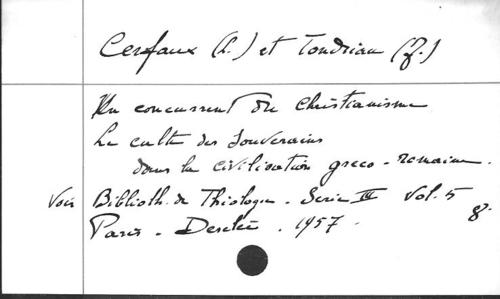 Cerfaux (L.) et Tondriau (J.)
Un concurrent du Christianisme
Le culte des Souverains
dans la civilisation greco-romaine.
Voir Biblioth. de Théologie. Serie III Vol. 5
8º.
Paris - Desclée. 1957.